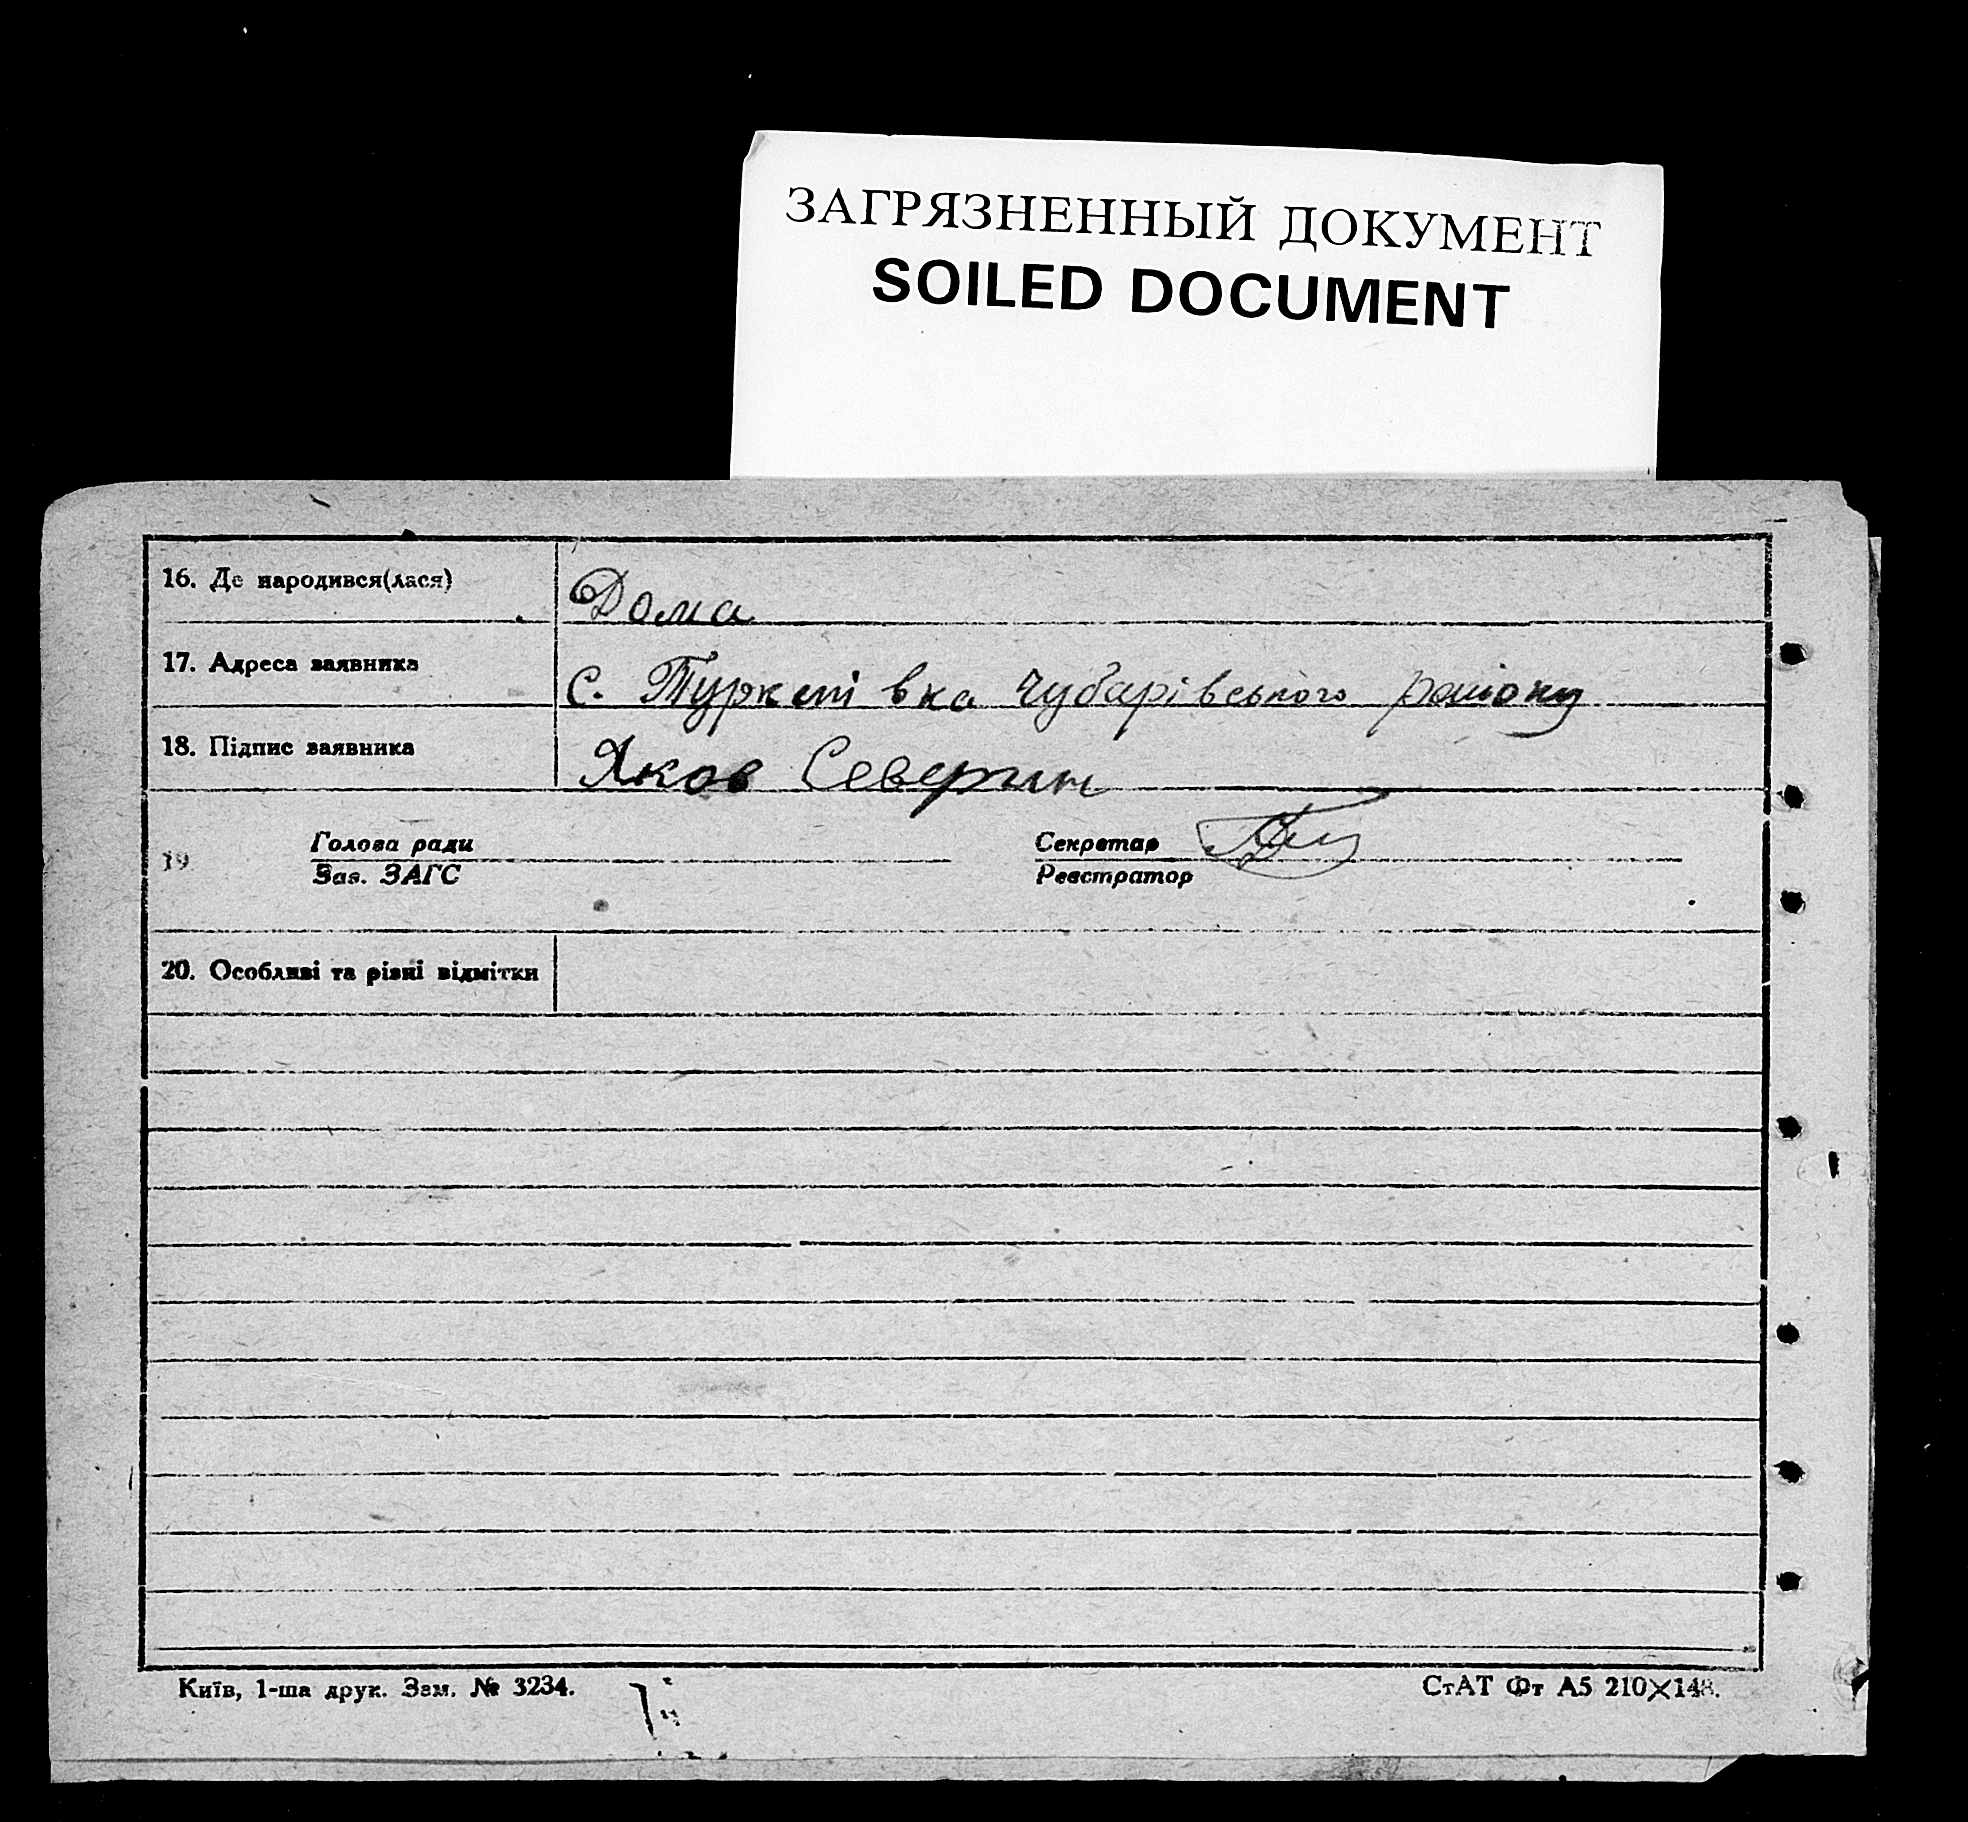 ЗАГРЯЗНЕННЫЙ ДОКУМЕНТ
SOILED DOCUMENT
16. Де народився(лася) Дома
17. Адреса заявника с. Туркенівка Чубарівського району
18. Підпис заявника Яков Северин
19 Голова ради Секретар
Зав. ЗАГС Реєстратор
20. Особливі та різні відмітки
Київ, 1-ша друк. Зам. № 3234.
СтАТ Фт А5 210×148.